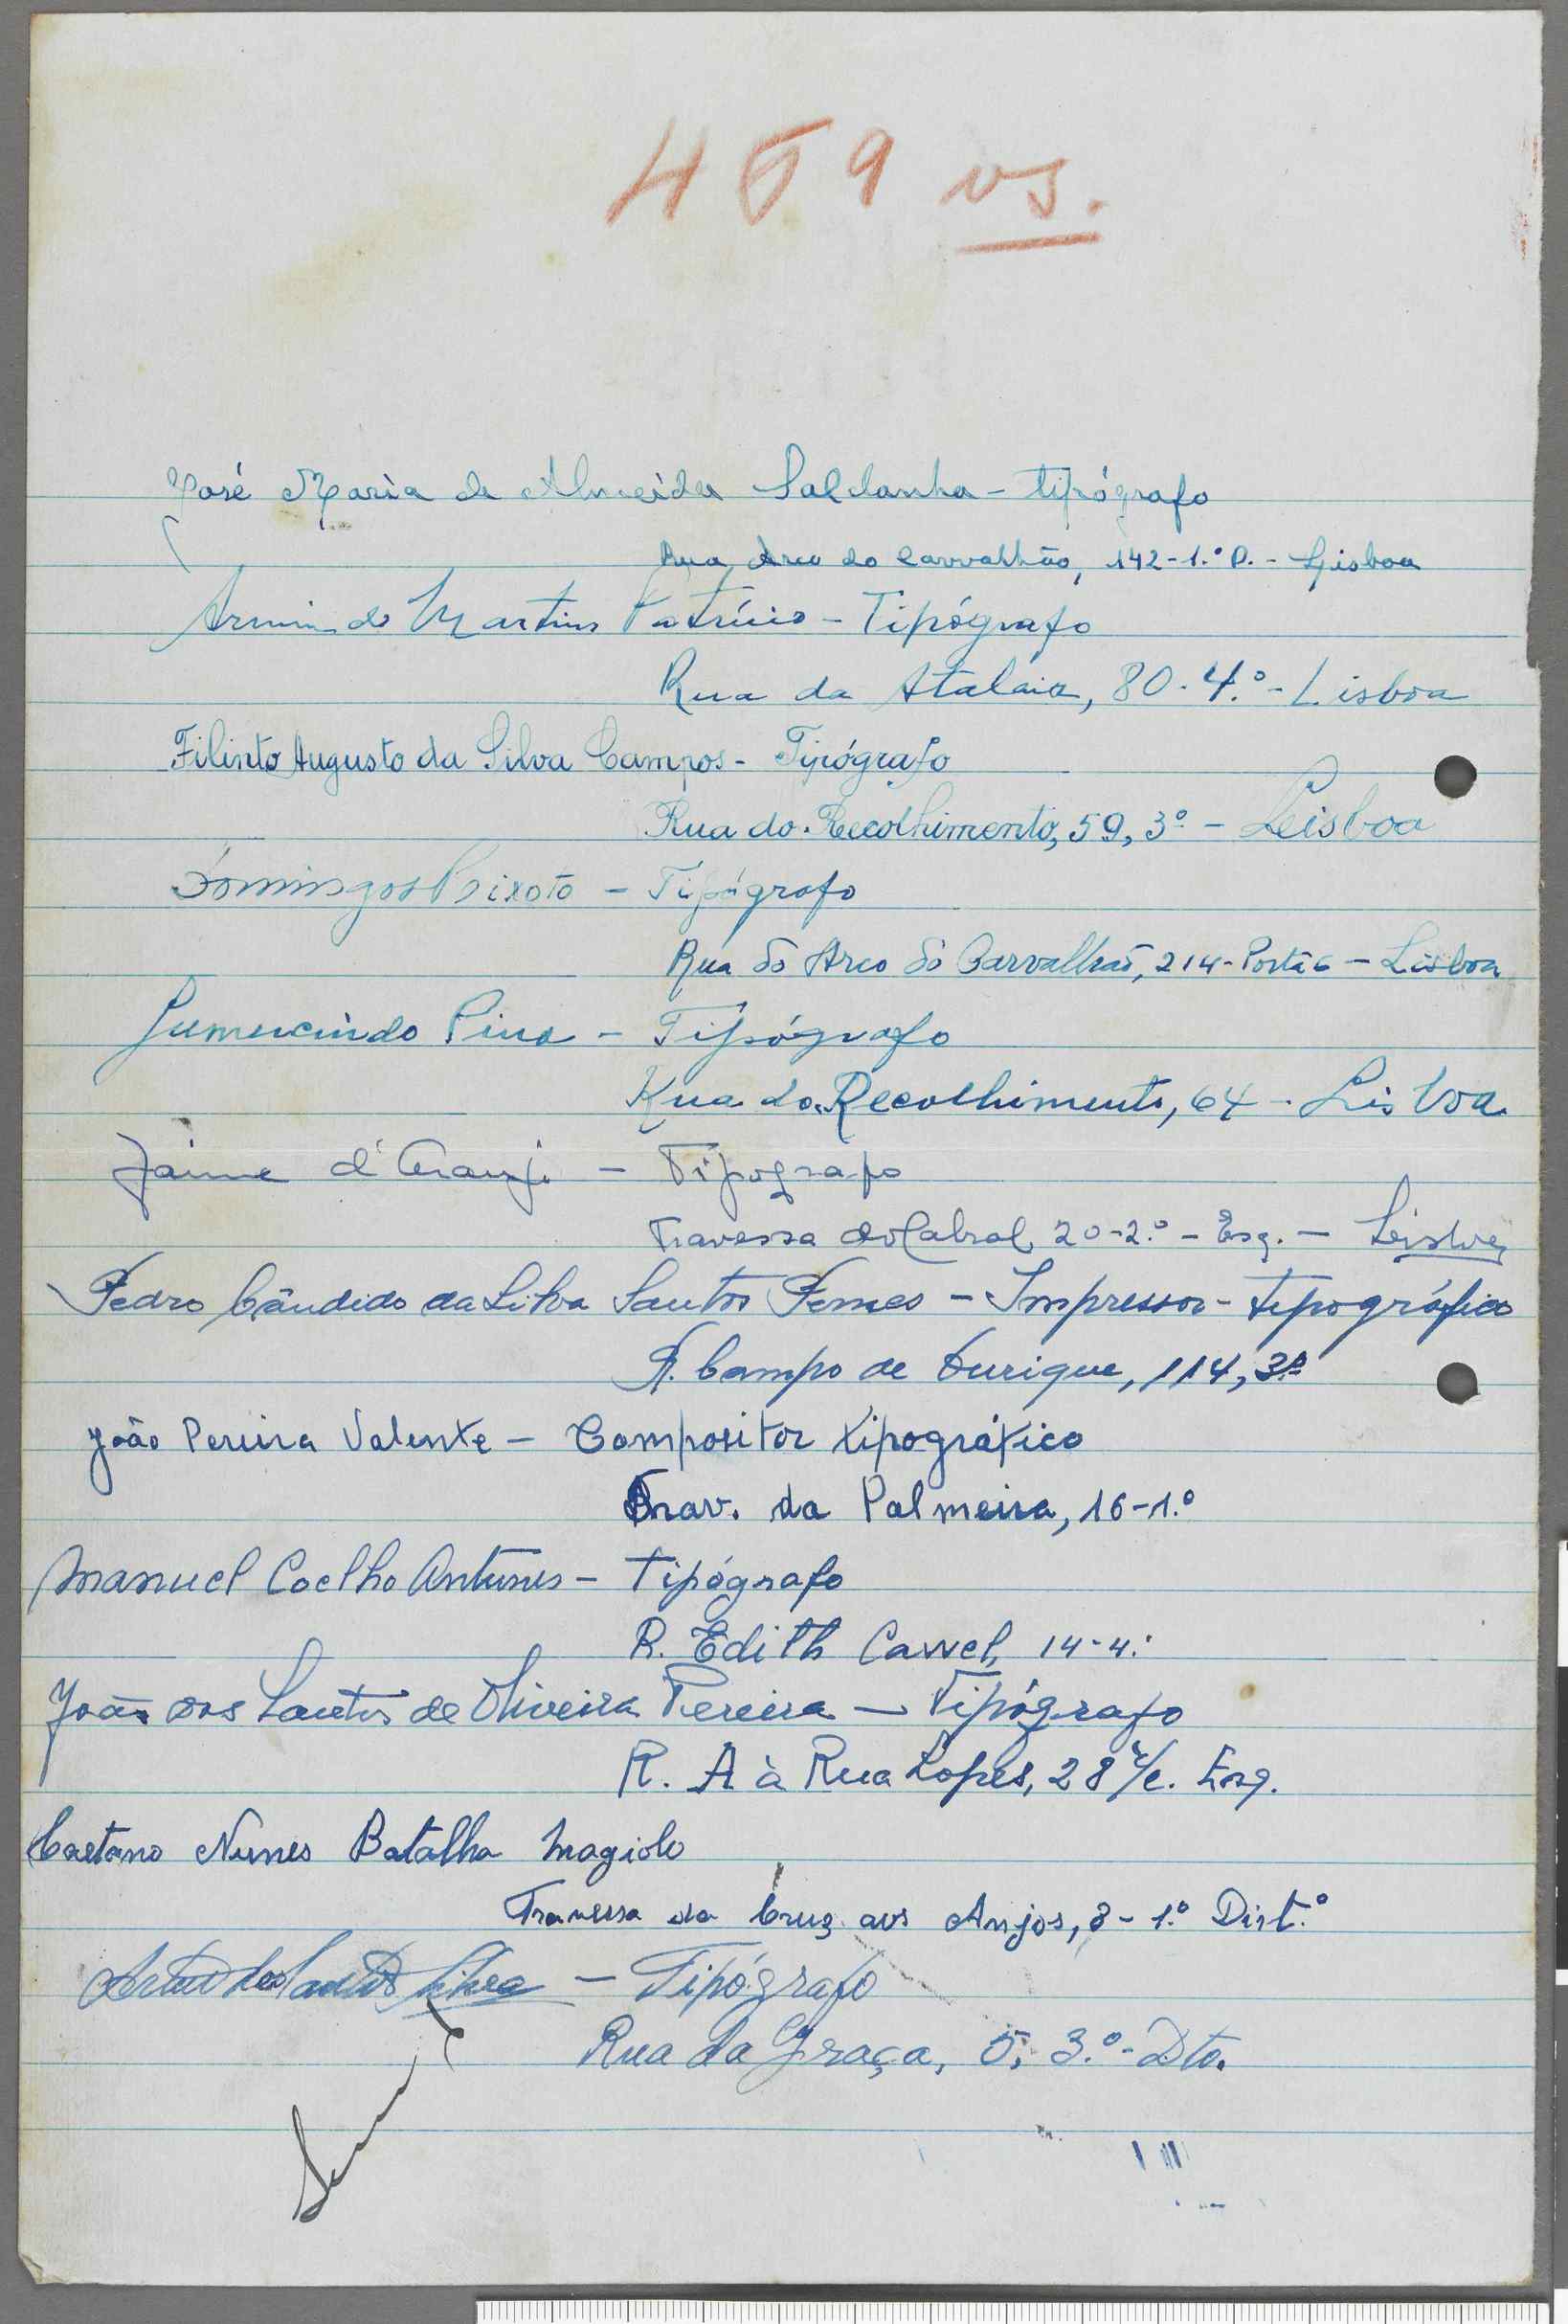 459 vs.
José Maria de Almeida Saldanha - tipógrafo
Rua Arco do Carvalhão, 142-1.º D. - Lisboa
Armindo Martins Patrício - Tipógrafo
Rua da Atalaia, 80-4.º - Lisboa
Filinto Augusto da Silva Campos - Tipógrafo
Rua do Recolhimento, 59, 3º - Lisboa
Domingos Peixoto - Tipógrafo
Rua do Arco do Carvalhão, 214 - Porta 6 - Lisboa
Gumercindo Pina - Tipógrafo
Rua do Recolhimento, 64 - Lisboa
Jaime d'Araujo - Tipografo
Travessa do Cabral 20-2.º - Esq. - Lisboa
Pedro Cândido da Silva Santos - Impressor-tipográfico
R. Campo de Ourique, 114, 3º
João Pereira Valente - Compositor tipográfico
Trav. da Palmeira, 16-1.º
Manuel Coelho Antunes - Tipógrafo
R. Edith Cavvel, 14-4.º
João dos Santos de Oliveira Pereira - Tipógrafo
R. A à Rua Lopes, 28 r/c. Esq.
Caetano Nunes Batalha Magiolo
Travessa da Cruz aos Anjos, 8-1.º Dirt.º
Artur dos Santos Silva - Tipógrafo
Rua da Graça, 5, 3.º-Dto.